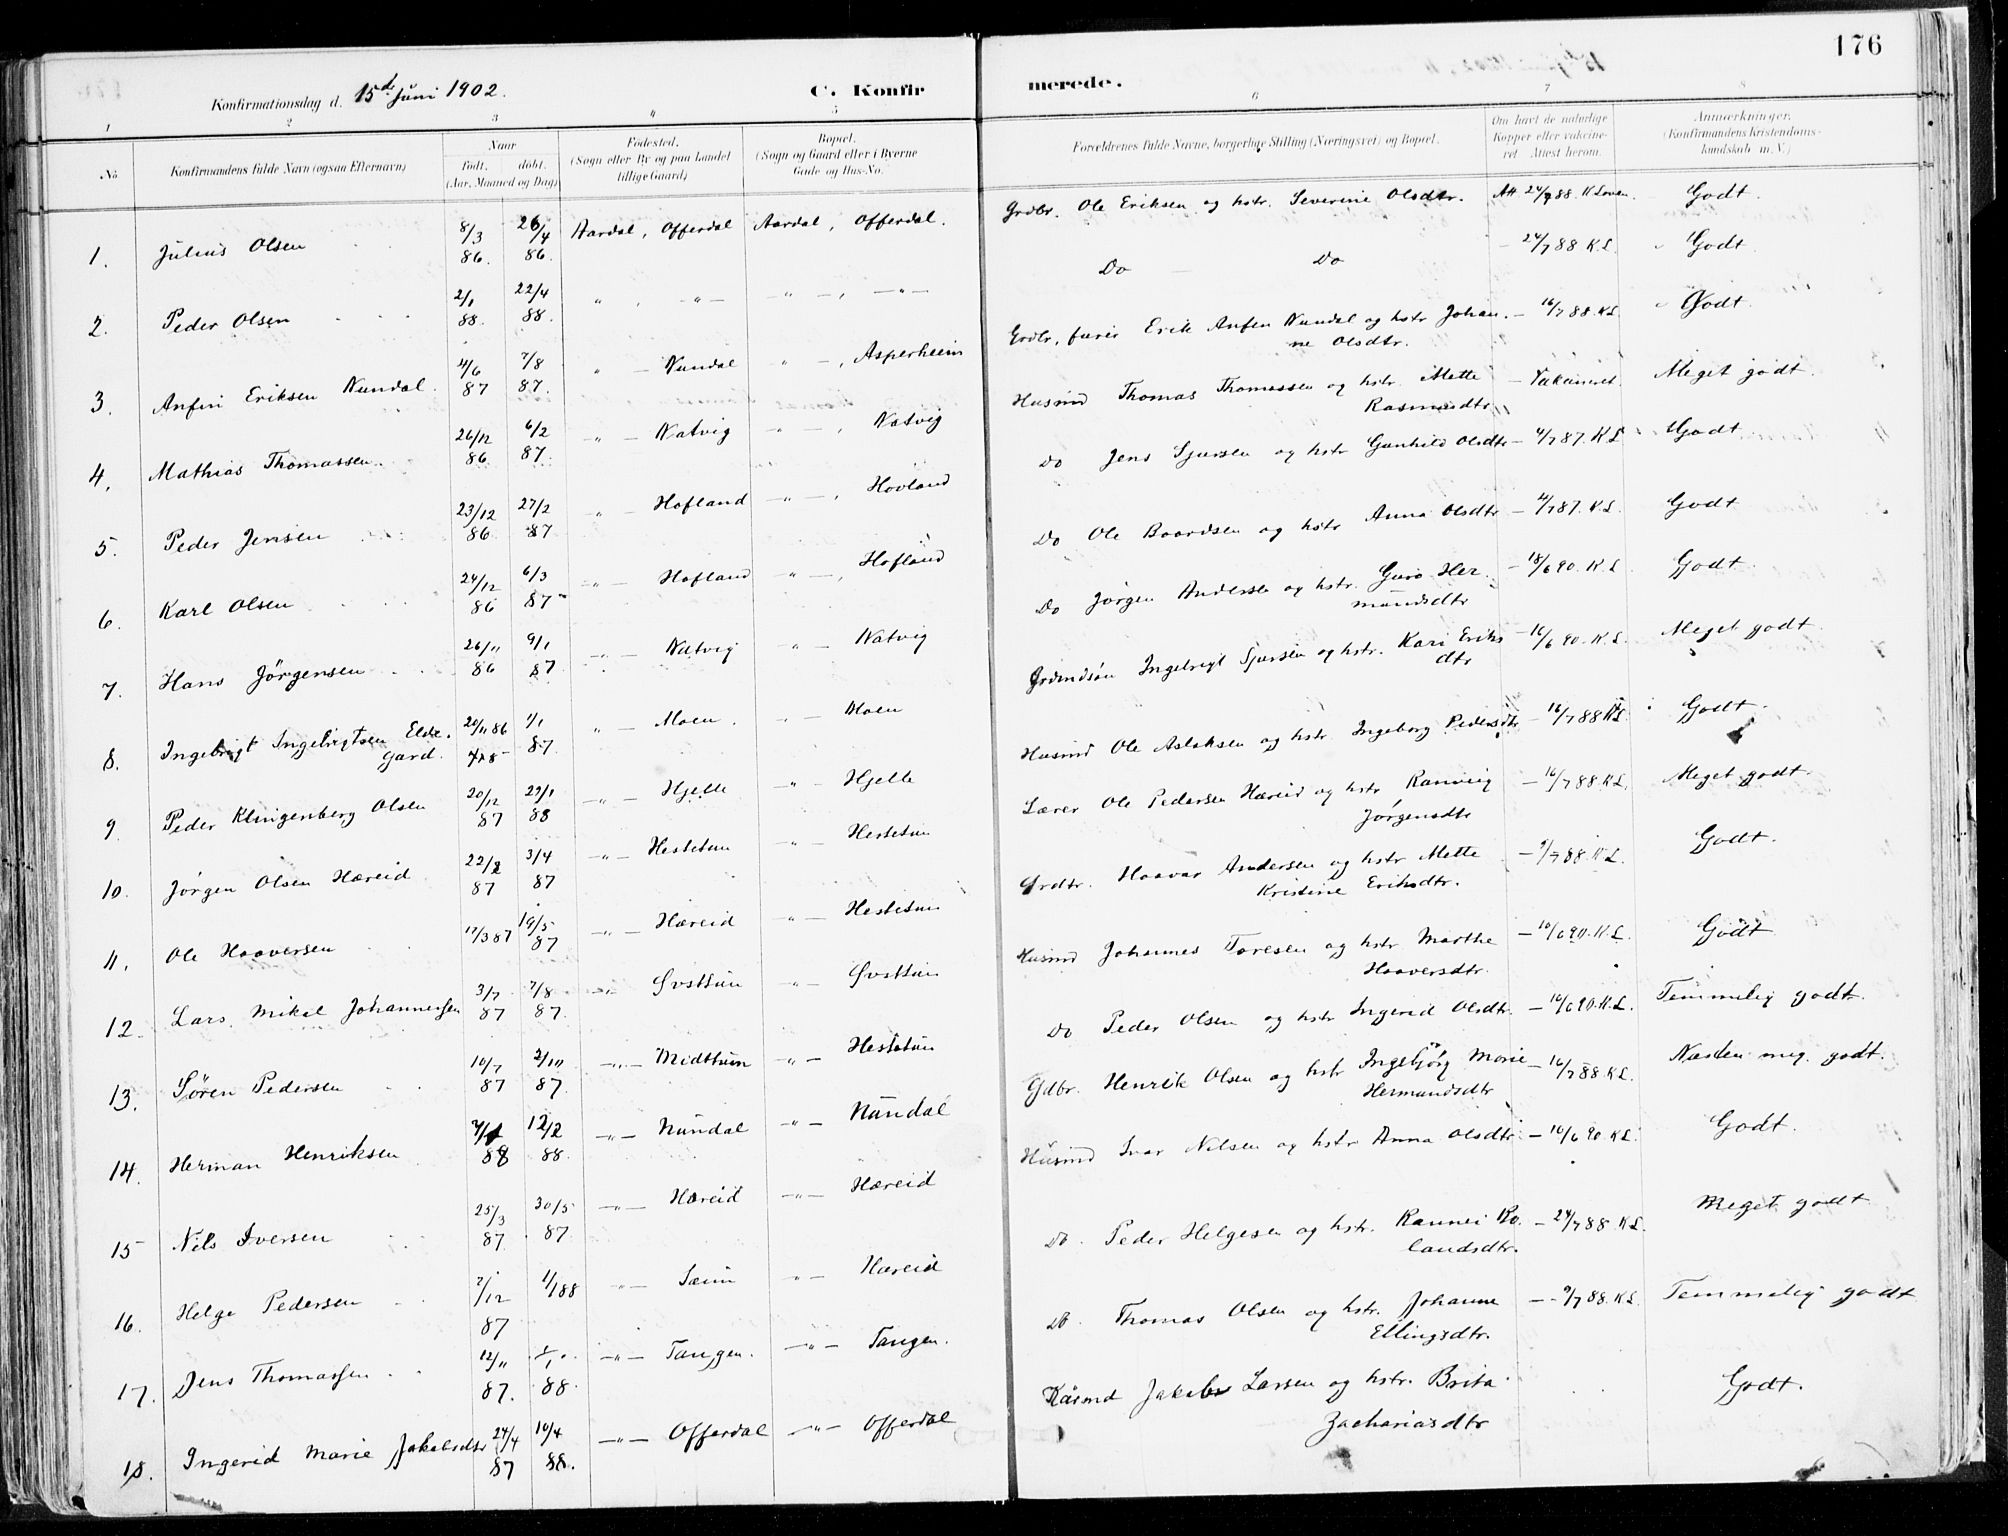 176
Konfirmationsdag d. 15de Juni 1902.
C. Konfirmerede.
1 2 3 4 5 6 7 8
No
Konfirmandens fulde Navn (ogsaa Efternavn)
Naar
født. døbt.
(Aar, Maaned og Dag)
Fødested.
(Sogn eller By og paa Landet
tillige Gaard)
Bopæl.
(Sogn og Gaard eller i Byerne
Gade og Hus-No.
Forældrenes fulde Navne, borgerlige Stilling (Næringsvei) og Bopæl.
Om havt de naturlige
Kopper eller vakcine-
ret Attest herom.
Anmærkninger.
(Konfirmandens kristendoms-
kundskab m. V.)
1. Julius Olsen 8/3 86. 26/4 86. Aardal, Offerdal Aardal, Offerdal. Grdbr. Ole Eriksen og hstr. Severine Olsdtr. Att 24/7 88. K Loven. Godt.
2. Peder Olsen 2/1 88. 22/4 88. " , -"- -"-, -"- Do - Do - 24/7 88 K.L. Godt.
3. Anfin Eriksen Nundal. 4/6 87 7/8 87. " - Nundal " -, Asperheim Grdbr, furér Erik Anfin Nundal og hstr Johanne Olsdtr. - 16/7 88. K.L. Godt.
4. Mathias Thomassen. 26/12 86 6/2 87. -"- Natvig -"-, Natvig Husmd Thomas Thomassen og hstr. Mette Rasmusdtr - Vakcineret. Meget godt.
5. Peder Jensen 23/12 86 27/2 87 " - Hofland -"-, Hovland Do Jens Sjursen og hstr Gunhild Olsdtr - 4/7 87. K L Godt
6. Karl Olsen 24/12 86 6/3 87 -"- Hofland -"-, Hofland Do Ole Baardsen og hstr Anna Olsdtr - 4/7 87. K.L. Godt
7. Hans Jørgensen 26/11 86 9/1 87 -"- Natvig "- Natvig Do Jørgen Andersen og hstr. Guro Hermundsdtr - 18/6 90. K.L Godt.
8. Ingebrigt Ingebrigtsen Eldegard. 20/11 86 1/1 87. "- Moen. "- Moen Grdmdsøn Ingebrigt Sjursen og hstr. Kari Eriksdtr - 16/6 90. K.L. Meget godt.
9. Peder Klingenberg Olsen 20/12 87 22/1 88 -"- Hjelle "- Hjelle Husmd Ole Aslaksen og hstr Ingeborg Pedersdtr - 16/7 88 K.L. Godt.
10. Jørgen Olsen Hæreid 22/2 87 3/4 87 -"- Hestetun "- Hestetun Lærer Ole Pedersen Hæreid og hstr Ranveig Jørgensdtr - 16/7 88. K.L. Meget godt.
11. Ole Haaversen 17/3 87 19/5 87 -"- Hæreid "- Hestetun Grdbr. Haavar Andersen og hstr Mette Kristine Eriksdtr. - 9/7 88. K.L. Godt.
12. Lars Mikal Johannessen 3/7 87 7/8 87. -"- Øvsttun "- Øvsttun Husmd Johannes Toresen og hstr Marthe Haaversdtr. - 10/6 90. K.L. Godt
13. Søren Pedersen 10/7 87 2/10 87. -"- Midttun "- Hestetun Do Peder Olsen og hstr Ingerid Olsdtr. - 10/6 90. K.L. Temmelig godt.
14. Herman Henriksen 88 12/2 88. -"- Nundal "- Nundal Gdbr. Henrik Olsen og hstr Ingebjørg Marie Hermundsdtr - 16/7 88. K.L. Næsten meg. godt.
15 Nils Iversen 25/3 87 30/5 87 -"- Hæreid -"- Hæreid Husmd Ivar Nilsen og hstr Anna Olsdtr. - 10/6 90. K.L. Godt.
16. Helge Pedersen 2/12 87 1/1 88 -"- Sæim "- Hæreid Do. Peder Helgesen og hstr. Rannei Rolandsdtr. - 24/7 88. K.L. Meget godt
17. Jens Thomassen 12/11 87. 88. -"- Tangen. -"- Tangen. Do. Thomas Olsen og hstr. Johanne Ellingsdtr. - 9/7 88. K.L. Temmelig godt
18. Ingerid Marie Jakobsdtr 24/4 87 10/4 88. -"- Offerdal -"- Offerdal Husmd Jakob Larsen og hstr. Brita Zachariasdtr Godt.